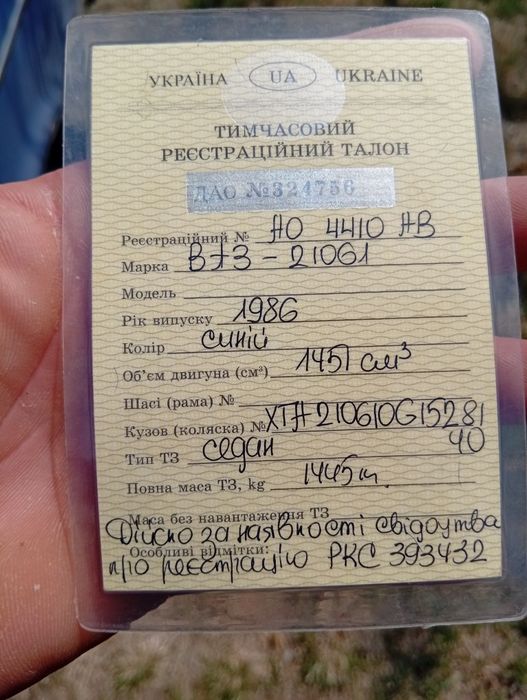 УКРАЇНА UA UKRAINE
ТИМЧАСОВИЙ
РЕЄСТРАЦІЙНИЙ ТАЛОН
ДАО №324756
Реєстраційний № АО 4410 АВ
Марка ВАЗ - 21061
Модель
Рік випуску 1986
Колір синій
Об'єм двигуна (см³) 1451 см³
Шасі (рама) №
Кузов (коляска) № ХТА210610G15281
40
Тип ТЗ седан
Повна маса ТЗ, kg 1445
Маса без навантаження ТЗ
Дійсно за наявності свідоцтва
Особливі відмітки:
п/о реєстрацію РКС 393432